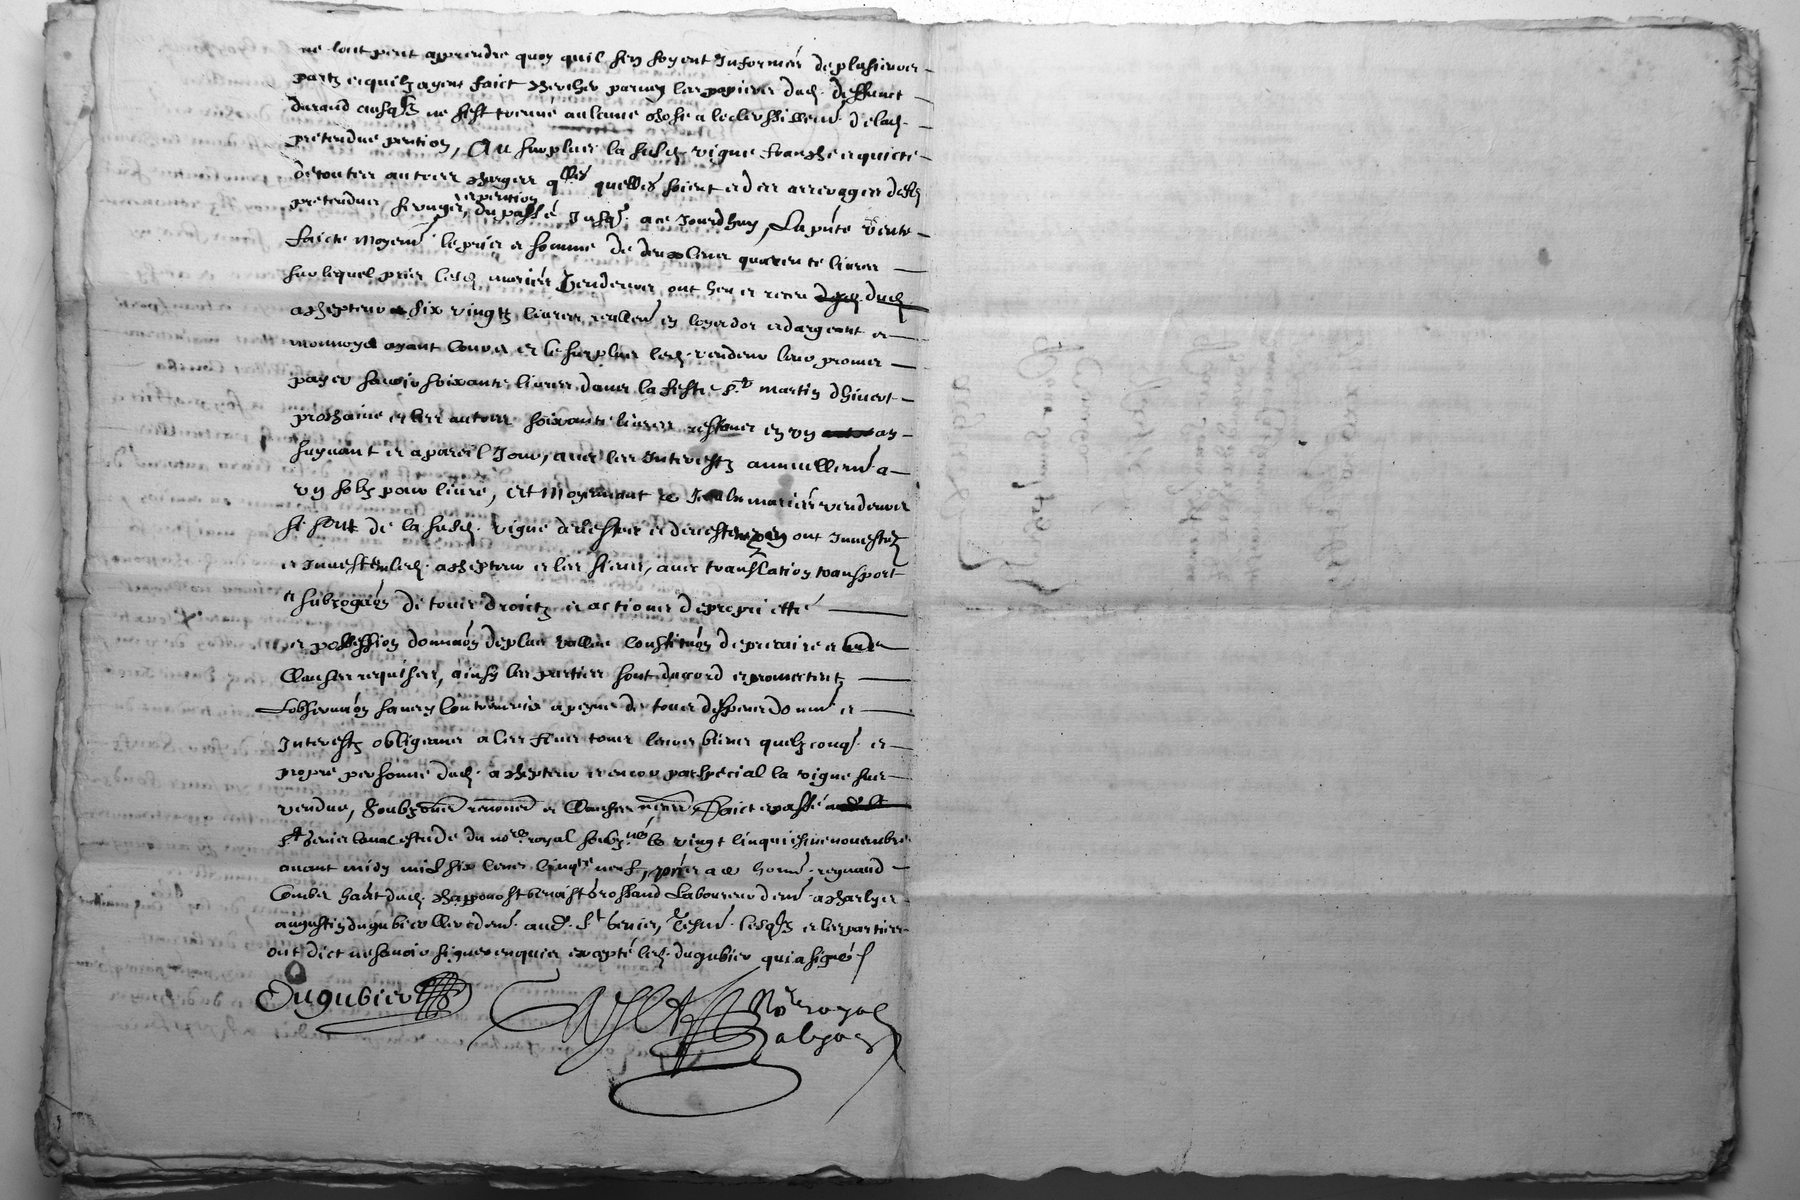 ne lont peut apprendre quoy quil sen soyent Informés de plusieurs
partz et quilz ayent faict chercher parmy les papiers dud. deffunct
durand ausqlz ne sest treuvé aulcune chose a leclersissemt. de lad.
pretendue pention, Au surplus la susd. vigne franche et quicte
de toutes autres charges qlles quelles soient et des arrerages desd.
pretendus servages, et pention du passé Jusq. a ce Jourdhuy, La pnte vente
faicte moyent. le pris et somme de deux cens quarente livres
sur lequel pris lesd. mariés vendeurs ont heu et receu dud.
achepteur six vingtz livres reallemt. en loys dor et dargent et
monnoye ayant cours et le surplus lesd. vendeur leur promet
payer scavoir soixante livres dans la feste St. martin dhivert
prochaine et les autres soixante livres restans en un an
suyvant et a pareil Jour, avec les Interestz annuellemt. a
un solz pour livre, Et Moyennant ce lesd. mariés vendeurs
se sont de la susd. vigne devestus et devestent en ont Investuz
et Investent led. achepteur et les siens, avec translation transport
et subrogaon de tous droictz et actions de proprietté
et possession donnaon de plus vallue constituon de precaire et autres
clauses requises, ainsy les parties sont dacord et promectent
Lobservaon sans y contrevenir a peyne de tous despens domm. et
Interestz obligeans a ces fins tous leurs biens quelzconq. et
propre personne dud. achepteur et encor par special la vigne sus
vendue, soubz renon. et clauses necess. Faict et passé a
St. Genis laval estude du nore. royal soubz.né le vingt cinquiesme novembre
avant midy mil six cens cinqte. neuf, pns a ce honn. reynaud
Combet habt dud. chapponost benoist brossand Laboureur demt. a charly et
augustin dugubier clerc demt. aud. St. Genis, Tesm. lesqlz et les parties
ont dict ne scavoir signer enquis excepté led. dugubier qui a signé
Dugubier
Nore royal